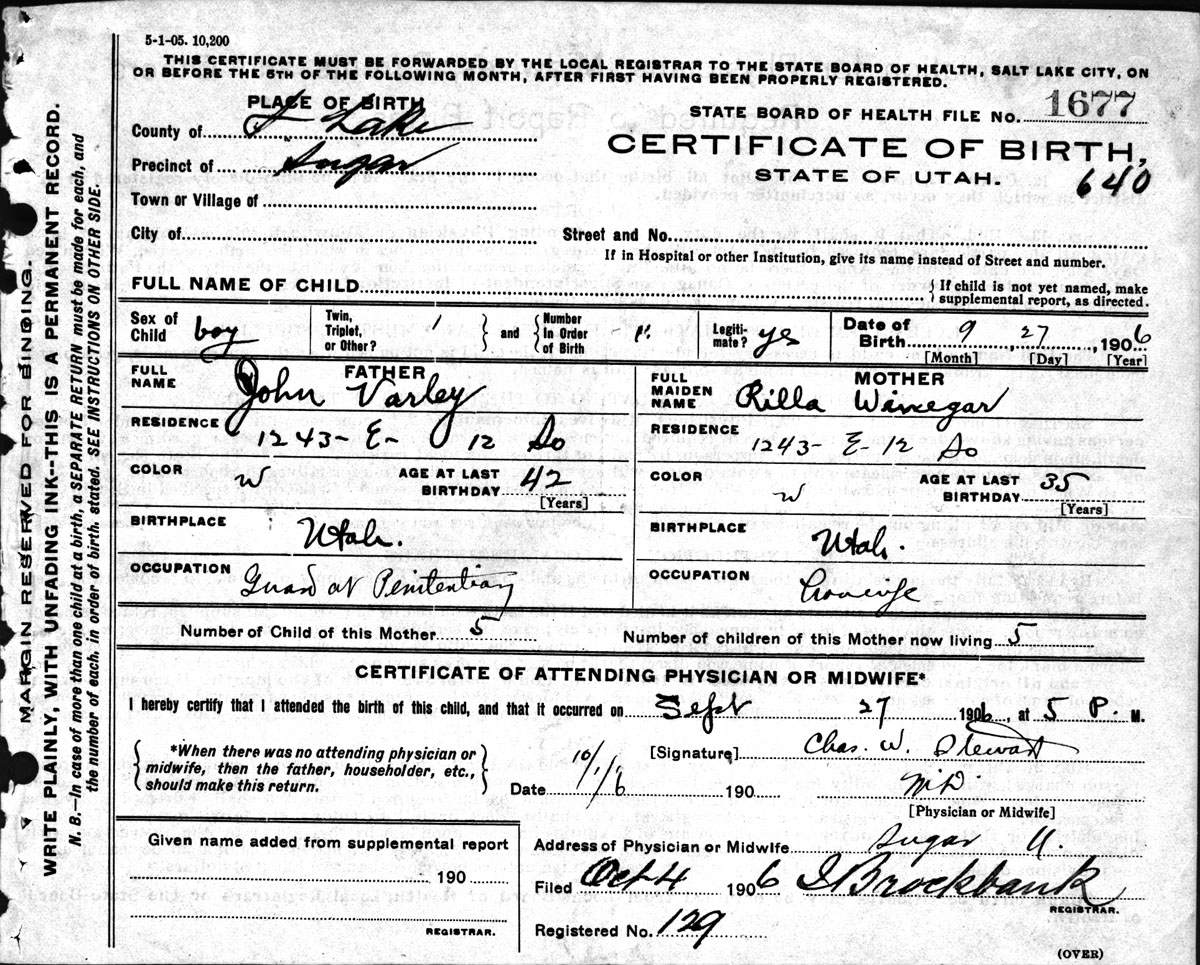 5-1-05. 10,200
THIS CERTIFICATE MUST BE FORWARDED BY THE LOCAL REGISTRAR TO THE STATE BOARD OF HEALTH, SALT LAKE CITY, ON
OR BEFORE THE 5TH OF THE FOLLOWING MONTH, AFTER FIRST HAVING BEEN PROPERLY REGISTERED.
MARGIN RESERVED FOR BINDING.
WRITE PLAINLY, WITH UNFADING INK--THIS IS A PERMANENT RECORD.
N. B.--In case of more than one child at a birth, a SEPARATE RETURN must be made for each, and
the number of each, in order of birth, stated. SEE INSTRUCTIONS ON OTHER SIDE.
PLACE OF BIRTH
County of Lake
Precinct of Sugar
Town or Village of
City of
STATE BOARD OF HEALTH FILE NO. 1677
CERTIFICATE OF BIRTH,
STATE OF UTAH. 640
Street and No.
If in Hospital or other Institution, give its name instead of Street and number.
FULL NAME OF CHILD
If child is not yet named, make
supplemental report, as directed.
Sex of Child boy
Twin, Triplet, or Other? 1 and Number In Order of Birth
Legiti-mate? yes
Date of Birth 9 27, 1906
[Month] [Day] [Year]
FATHER
FULL NAME John Varley
RESIDENCE 1243- E- 12 So
COLOR w AGE AT LAST BIRTHDAY 42
[Years]
BIRTHPLACE Utah.
OCCUPATION Guard at Penitentiary
MOTHER
FULL MAIDEN NAME Rilla Winegar
RESIDENCE 1243- E- 12 So
COLOR w AGE AT LAST BIRTHDAY 35
[Years]
BIRTHPLACE Utah.
OCCUPATION
Number of Child of this Mother 5 Number of children of this Mother now living 5
CERTIFICATE OF ATTENDING PHYSICIAN OR MIDWIFE*
I hereby certify that I attended the birth of this child, and that it occurred on Sept 27 1906, at 5 P. M.
*When there was no attending physician or
midwife, then the father, householder, etc.,
should make this return.
[Signature] Chas. W. Stewart
Date 10/1/6 190 M.D.
[Physician or Midwife]
Given name added from supplemental report
190
REGISTRAR.
Address of Physician or Midwife Sugar
Filed Oct 4 1906 Brockbank
REGISTRAR.
Registered No. 129
(OVER)